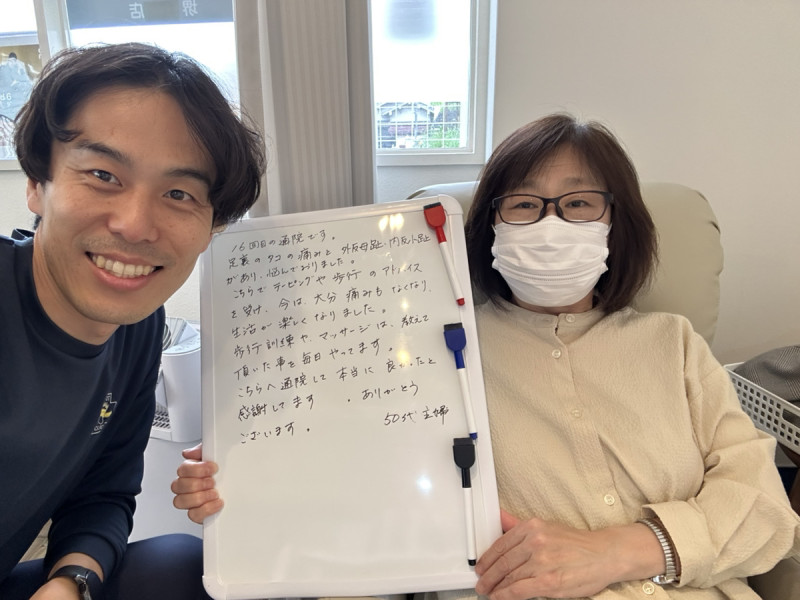 堺
店
16回目の通院です。
足裏のタコの痛みと外反母趾、内反小趾
があり、悩んでおりました。
こちらでテーピングや歩行のアドバイス
を受け、今は、大分痛みもなくなり、
生活が楽しくなりました。
歩行訓練や、マッサージは、教えて
頂いた事を毎日やってます。
こちらへ通院して本当に良かったと
感謝してます。ありがとう
ございます。
50代 主婦